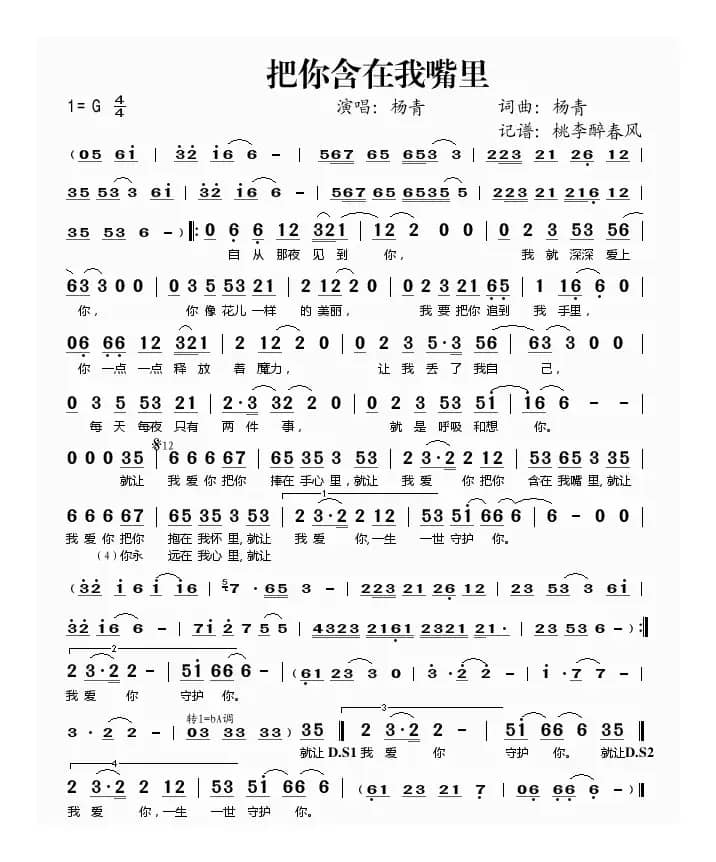 把你含在我嘴里
1= G 4/4 演唱：杨青 词曲：杨青
记谱：桃李醉春风
( 05 61 | 32 16 6 - | 567 65 653 3 | 223 21 26 12 |
35 53 3 61 | 32 16 6 - | 567 65 6535 5 | 223 21 216 12 |
35 53 6 - ) ‖: 0 6 6 12 321 | 12 2 0 0 | 0 2 3 53 56 |
自 从 那夜 见 到 你， 我 就 深深 爱上
63 3 0 0 | 0 3 5 53 21 | 2 12 2 0 | 0 2 3 21 65 | 1 16 6 0 |
你， 你 像 花儿 一样 的 美丽， 我 要 把你 追到 我 手里，
06 66 12 321 | 2 12 2 0 | 0 2 3 5·3 56 | 63 3 0 0 |
你 一点 一点 释 放 着 魔力， 让 我 丢 了 我自 己，
0 3 5 53 21 | 2·3 32 2 0 | 0 2 3 53 51 | 16 6 - - |
每 天 每夜 只有 两 件 事， 就 是 呼吸 和想 你。
12
0 0 0 35 | 6 6 6 67 | 65 35 3 53 | 2 3·2 2 12 | 53 65 3 35 |
就让 我 爱 你 把你 捧在 手心 里，就让 我 爱 你 把你 含在 我嘴 里，就让
1
6 6 6 67 | 65 35 3 53 | 2 3·2 2 12 | 53 51 66 6 | 6 - 0 0 |
我 爱 你 把你 抱在 我怀 里，就让 我 爱 你，一生 一世 守护 你。
(4) 你永 远在 我心 里，就让
( 32 16 1 16 | 5 7 · 65 3 - | 223 21 26 12 | 35 53 3 61 |
32 16 6 - | 71 2 7 5 5 | 4323 2161 2321 21· | 23 53 6 - ) :‖
2
2 3·2 2 - | 51 66 6 - | ( 61 23 3 0 | 3 · 2 2 - | 1 · 7 7 - |
我 爱 你 守护 你。
转1=bA调 3
3 · 2 2 - | 03 33 33 ) 35 ‖ 2 3·2 2 - | 51 66 6 35 ‖
就让 D.S1 我 爱 你 守护 你。 就让 D.S2
4
2 3·2 2 12 | 53 51 66 6 | ( 61 23 21 7 | 06 66 6 - ) ‖
我 爱 你，一生 一世 守护 你。